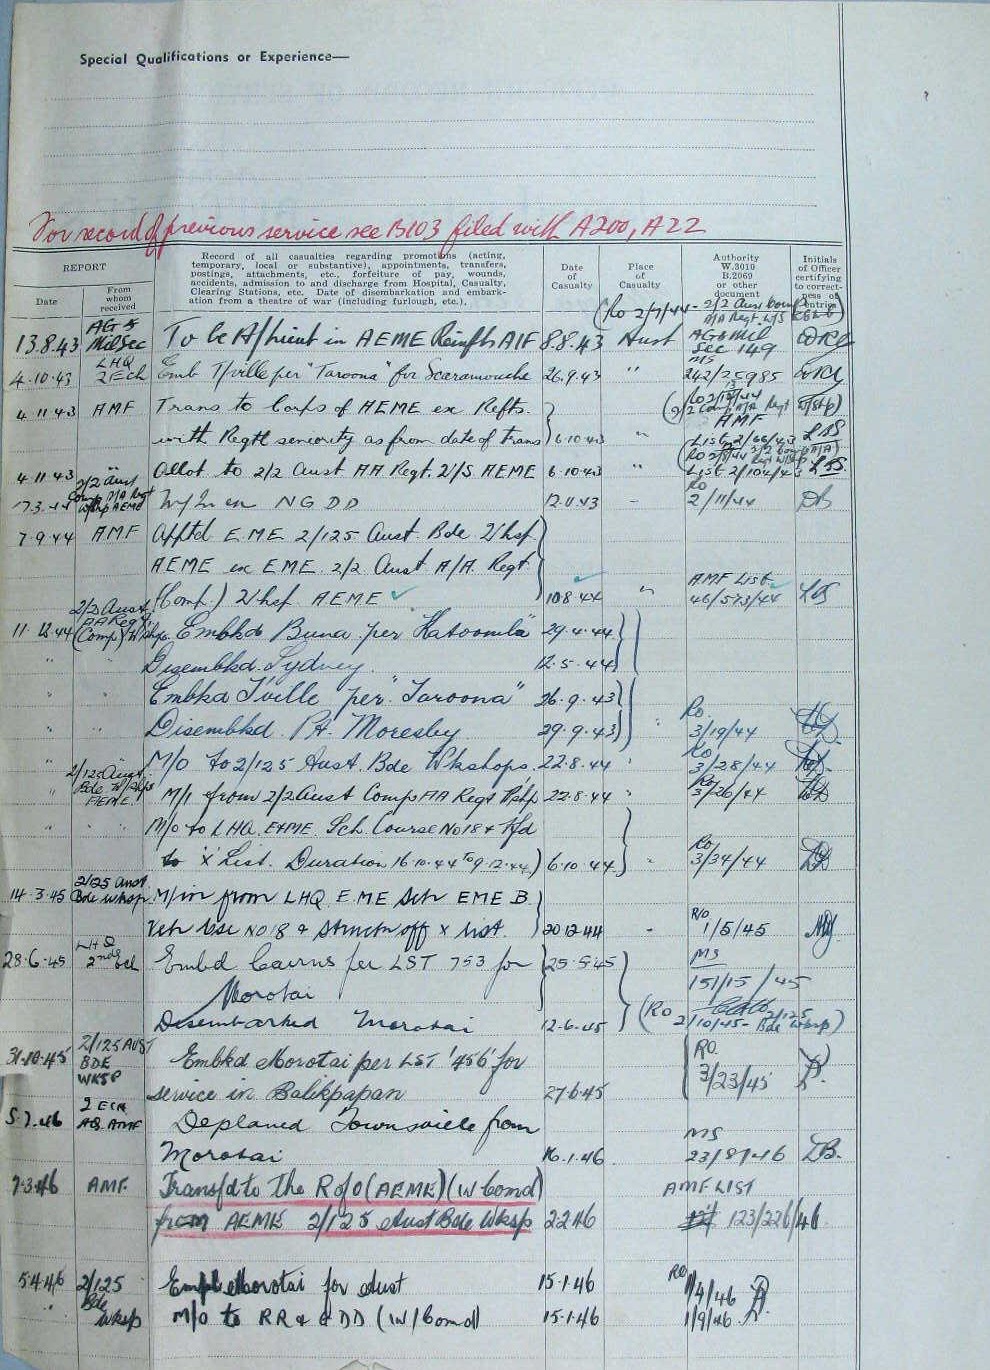 Special Qualifications or Experience—
For record of previous service see B103 filed with A200, A22
REPORT
Date
From whom received
Record of all casualties regarding promotions (acting,
temporary, local or substantive), appointments, transfers,
postings, attachments, etc., forfeiture of pay, wounds,
accidents, admission to and discharge from Hospital, Casualty,
Clearing Stations, etc. Date of disembarkation and embark-
ation from a theatre of war (including furlough, etc.).
Date of Casualty
Place of Casualty
Authority W.3010 B.2069 or other document
Initials of Officer certifying to correct-ness of Entries
(Ro 2/7/44 - 2/2 Aust Comp
A/A Regt W/S
AG 5
13.8.43 MilSec To be A/Lieut in AEME Reinfts AIF 8.8.43 Aust AG6 Mil
Sec 149
LHQ MS
4.10.43 2 Ech Emb T/ville per "Taroona" for Scaramouche 26.9.43 " 242/25985
4.11.43 AMF Trans to Corps of AEME ex Refts. AMF
with Regtl seniority as from date of trans) 6.10.43 " List 2/66/43 LBS
4.11.43 " Allot to 2/2 Aust AA Regt. W/S AEME 6.10.43 " List 2/104/43 LBS
2/2 Aust
Comp A/A Regt RO
7.3.44 W/shp AEME M/In ex NG DD 12.11.43 - 2/11/44 DB
7.9.44 AMF Apptd E.M.E. 2/125 Aust. Bde W/hsp
AEME ex EME. 2/2 Aust A/A. Regt AMF List
(Comp.) W/hsp. AEME ✓ 10.8.44 " 46/573/44 LBS
2/2 Aust
AA Regt
11.12.44 (Comp) W/shp. Embkd Buna per "Katoomba" 29.4.44
" " Disembkd. Sydney. 12.5.44
" " Embkd T'ville per "Taroona" 26.9.43 Ro
" " Disembkd. Pt. Moresby 29.9.43 " 3/19/44
Ro
" " M/O to 2/125 Aust. Bde Wkshops. 22.8.44 " 3/28/44
2/125 Aust.
Bde W/shps Ro
" AEME M/I from 2/2 Aust Comp AA Regt W/shp 22.8.44 " 3/26/44
" " " M/O to LHQ. E&ME. Sch. Course No 18 & tfd Ro
to 'X' List. Duration 16.10.44 to 9.12.44) 6.10.44 " 3/34/44
2/125 Aust
14.3.45 Bde Wksp M/in from LHQ E.ME Sch EME B. R/O
Veh Cse No 18 & Struck off x list. 20.12.44 - 1/5/45
LHQ MS
28.6.45 2nd Ech Embd Cairns per LST 753 for 25.5.45 151/15/45
Morotai
Disembarked Morotai 12.6.45 (Ro 2/10/45 - 2/125 Bde Wksp)
2/125 AUST RO
31.10.45 BDE Embkd Morotai per LST '456' for 3/23/45
WKSP service in Balikpapan 27.6.45
2 ECH
5.2.46 HQ. AMF Deplaned Townsville from MS
Morotai 16.1.46 23/87/46 DB.
7.3.46 AMF. Transfd to the R of O (AEME) (W Comd) AMF LIST
from AEME 2/125 Aust Bde Wksp 2.2.46 123/226/46
5.4.46 2/125 Embk Morotai for Aust 15.1.46 RO 1/4/46
" Bde Wksp M/O to RR & GDD (W/Comd) 15.1.46 1/9/46